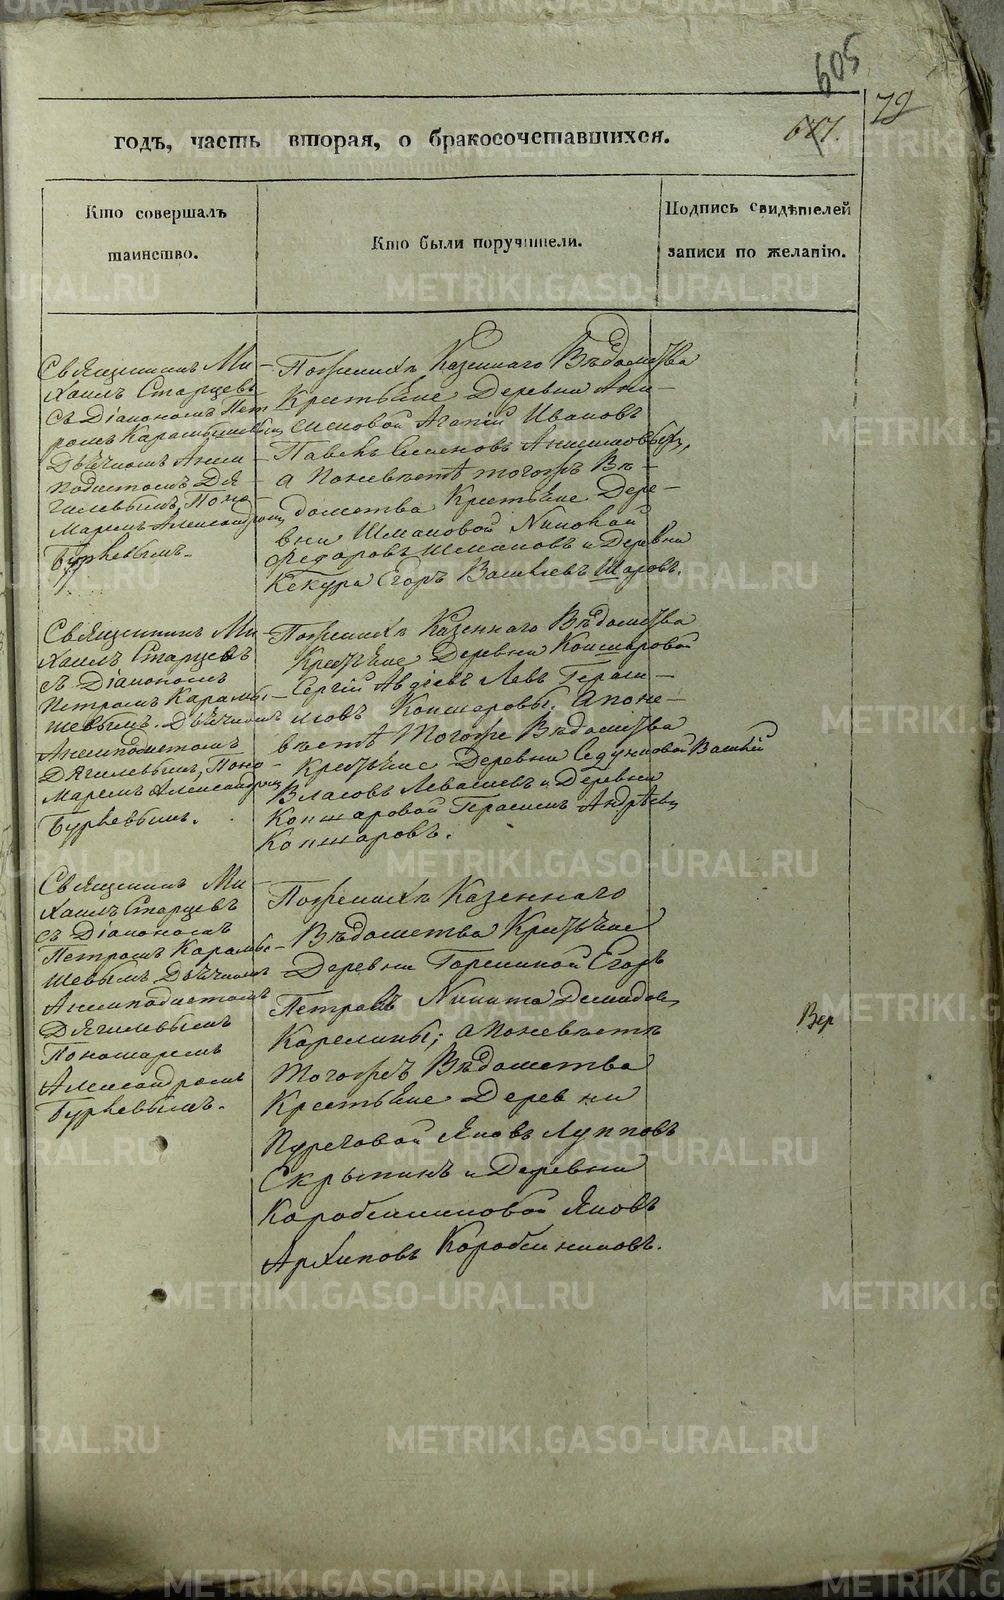 605
72
годъ, часть вторая, о бракосочетавшихся.
Кто совершалъ
таинство.
Кто были поручители.
Подпись свидѣтелей
записи по желанію.
Священникъ Ми-
хаилъ Старцевъ
съ Діакономъ Пет
ромъ Карамышевым
Дьячкомъ Анем-
подистомъ Дя-
гилевымъ, Поно-
маремъ Александромъ
По женихѣ Казеннаго Вѣдомства
Крестьяне Деревни Ани-
симовой Агапій Ивановъ
Павелъ Семеновъ Анисимовы,
а по невѣстѣ тогожъ Вѣ-
домства Крестьяне Дере-
вни Шмаковой Николай
Федоровъ Шмаковъ и Деревни
Кекура Егоръ Васильевъ Шаровъ.
Священникъ Ми-
хаилъ Старцевъ
съ Діакономъ
Петромъ Карамы-
шевымъ, Дьячкомъ
Анемподистомъ
Дягилевымъ, Поно-
маремъ Александромъ
По женихѣ Казеннаго Вѣдомства
Крестьяне Деревни Кошкаровой
Сергій Авдіевъ Левъ Гераси-
мовъ Кошкаровы, а по не-
вѣстѣ тогоже Вѣдомства
Крестьяне Деревни Василій
Власовъ и Деревни
Кошкаровой Герасимъ Андрѣевъ
Кошкаровъ.
Священникъ Ми-
хаилъ Старцевъ
съ Діакономъ
Петромъ Карамы-
шевымъ, Дьячкомъ
Анемподистомъ
Дягилевымъ
Пономаремъ
Александромъ
По женихѣ Казеннаго
Вѣдомства Крестьяне
Деревни Егоръ
Петровъ Никита Демидовъ
Карелины; а по невѣстѣ
тогожъ Вѣдомства
Крестьяне Деревни
Яковъ Лупповъ
Скрыпинъ и Деревни
Коробейниковой Яковъ
Архиповъ Коробейниковъ.
Вер
METRIKI.GASO-URAL.RU